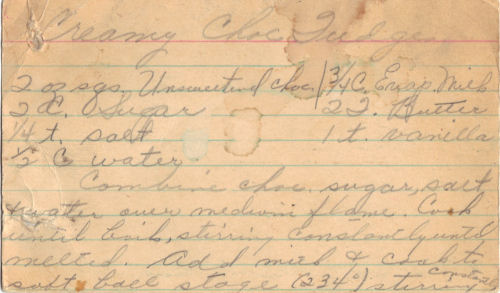 Creamy Choc Fudge
2 oz sqs. Unsweetend choc. | 3/4 C. Evap. Milk
2 C. Sugar 2 T. Butter
1/4 t. salt 1 t. vanilla
1/2 C water.
Combine choc. sugar, salt,
+ water over medium flame. Cook
until boils, stirring constantly until
melted. Add milk & cook to
soft ball stage (234°) stirring constantly